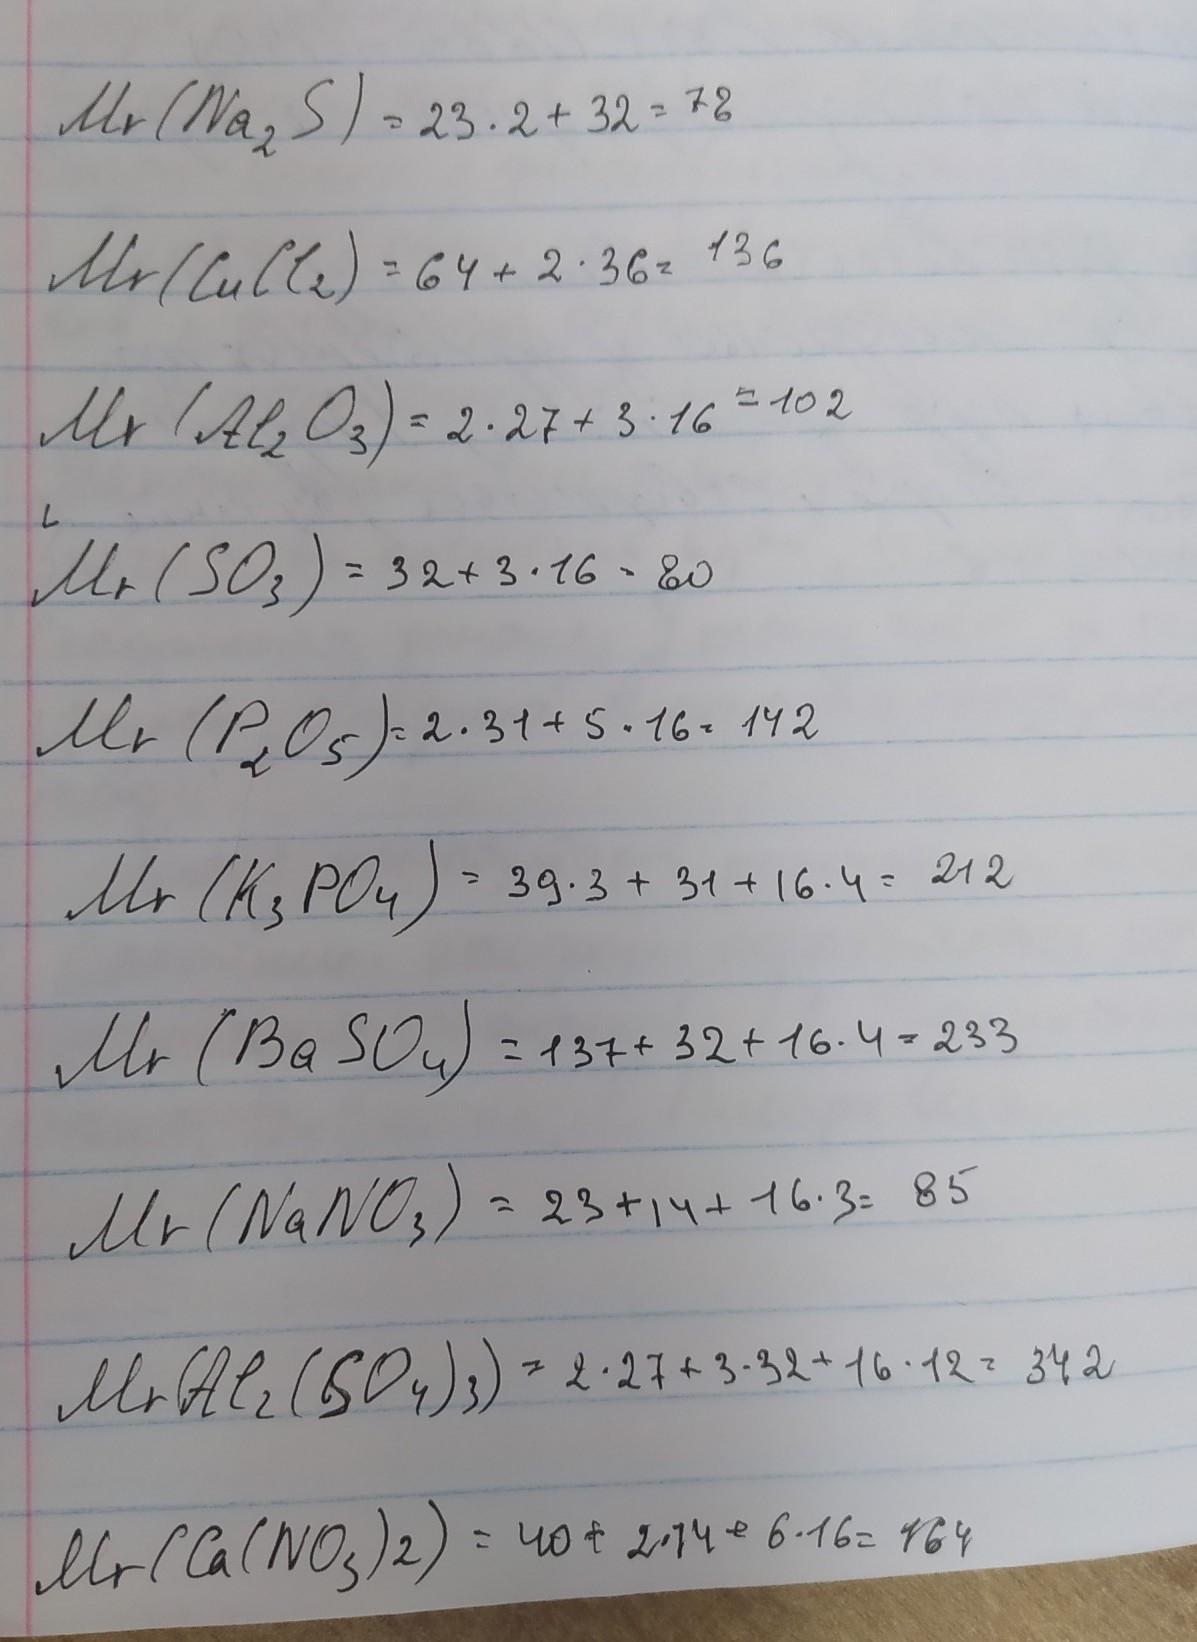 Mr(Na₂S) = 23·2+32=78
Mr(CuCl₂) = 64+2·36= 136
Mr(Al₂O₃) = 2·27+3·16=102
Mr(SO₃) = 32+3·16=80
Mr(P₂O₅)=2·31+5·16= 142
Mr(K₃PO₄) = 39·3+31+16·4= 212
Mr(BaSO₄) = 137+32+16·4=233
Mr(NaNO₃) = 23+14+16·3= 85
Mr(Al₂(SO₄)₃) = 2·27+3·32+16·12= 342
Mr(Ca(NO₃)2) = 40+2·14+6·16= 164